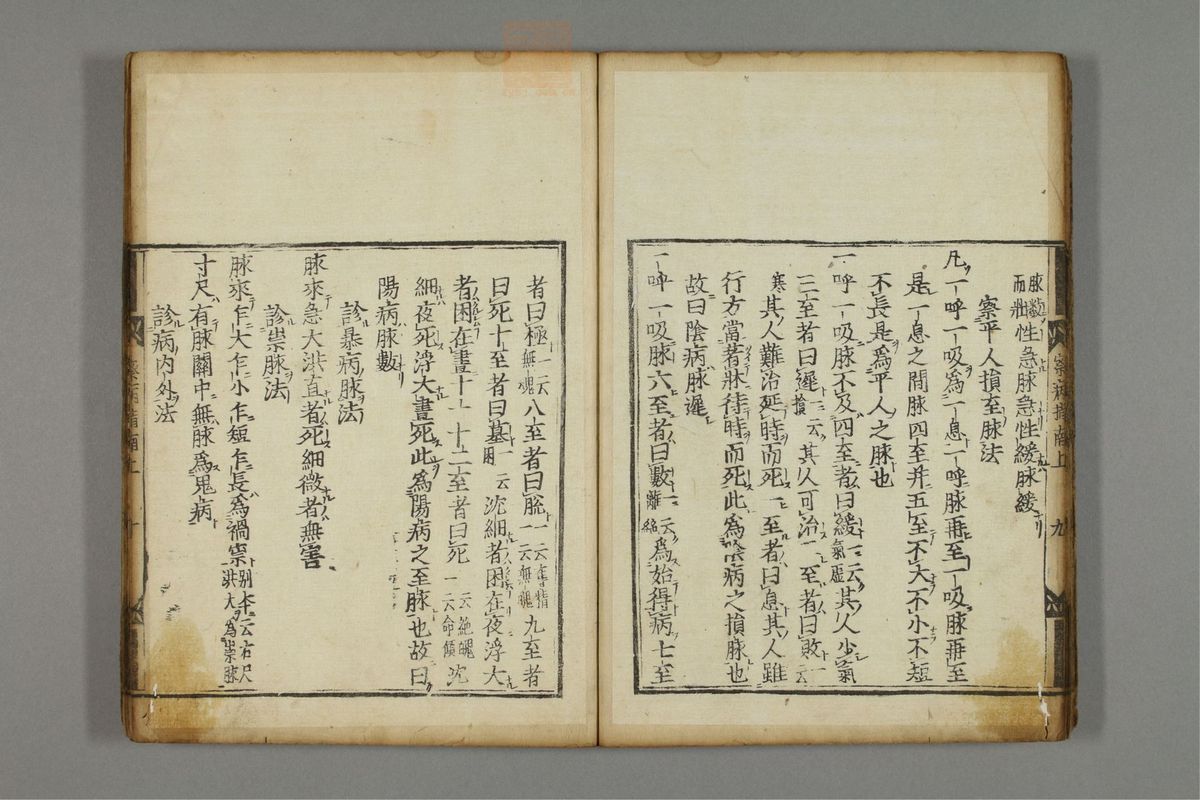 脉數而壯性急脉急性緩脉緩
察平人損至脉法
凡一呼一吸爲一息一呼脉再至一吸脉再至
是一息之間脉四至并五至不大不小不短
不長是爲平人之脉也
一呼一吸脉不及四至者曰緩一云氣虚其人少氣
三至者曰遲一云損其人可治二至者曰敗一云
寒其人難治延時而死一至者曰息其人雖
行方當著牀待時而死此爲陰病之損脉也
故曰陰病脉遲
一呼一吸脉六至者曰數一云離經爲始得病七至
者曰極一云無魂八至者曰脱一云奪精一云無魄九至者
曰死十至者曰墓一云困沈細者困在夜浮大
者困在晝十一十二至者曰死一云絶魄一云命傾沈
細夜死浮大晝死此爲陽病之至脉也故曰
陽病脉數
診暴病脉法
脉來急大洪直者死細微者無害
診祟脉法
脉來乍大乍小乍短乍長爲禍祟別本一云右尺洪大爲祟脉
寸尺有脉關中無脉爲鬼病
診病内外法
察病指南上 九